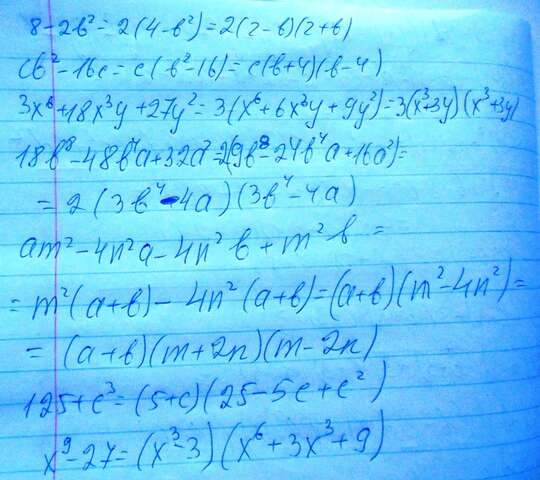 8-2b²=2(4-b²)=2(2-b)(2+b)
cb²-16c=c(b²-16)=c(b+4)(b-4)
3x⁶+18x³y+27y²=3(x⁶+6x³y+9y²)=3(x³+3y)(x³+3y)
18b⁸-48b⁴a+32a²=2(9b⁸-24b⁴a+16a²)=
=2(3b⁴-4a)(3b⁴-4a)
am²-4n²a-4n²b+m²b=
=m²(a+b)-4n²(a+b)=(a+b)(m²-4n²)=
=(a+b)(m+2n)(m-2n)
125+c³=(5+c)(25-5c+c²)
x⁹-27=(x³-3)(x⁶+3x³+9)